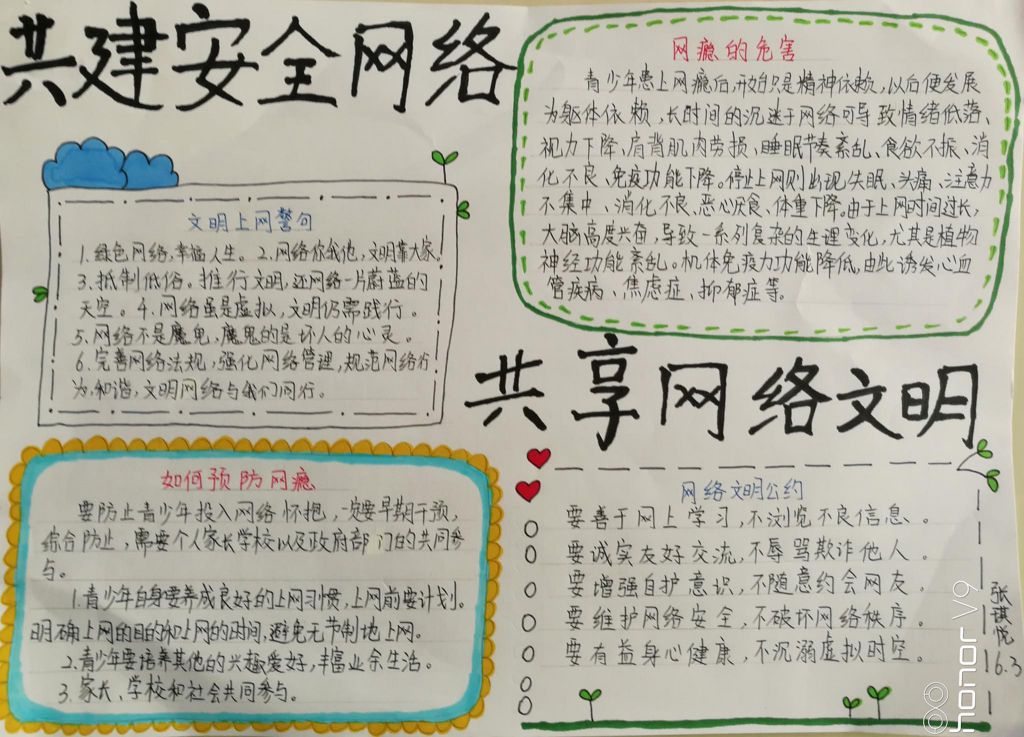 共建安全网络
网瘾的危害
青少年患上网瘾后,开始只是精神依赖,以后便发展
为躯体依赖,长时间的沉迷于网络可导致情绪低落、
视力下降、肩背肌肉劳损、睡眠节奏紊乱、食欲不振、消
化不良、免疫功能下降。停止上网则出现失眠、头痛、注意力
不集中、消化不良、恶心厌食、体重下降。由于上网时间过长,
大脑高度兴奋,导致一系列复杂的生理变化,尤其是植物
神经功能紊乱。机体免疫力功能降低,由此诱发心血
管疾病、焦虑症、抑郁症等。
文明上网警句
1.绿色网络,幸福人生。2.网络你我他,文明靠大家。
3.抵制低俗。推行文明,还网络一片蔚蓝的
天空。4.网络虽是虚拟,文明仍需践行。
5.网络不是魔鬼,魔鬼的是坏人的心灵。
6.完善网络法规,强化网络管理,规范网络行
为,和谐,文明网络与我们同行。
共享网络文明
如何预防网瘾
要防止青少年投入网络怀抱,一定要早期干预,
综合防止,需要个人家长学校以及政府部门的共同参
与。
1.青少年自身要养成良好的上网习惯,上网前要计划。
明确上网的目的和上网的时间,避免无节制地上网。
2.青少年要培养其他的兴趣爱好,丰富业余生活。
3.家长、学校和社会共同参与。
网络文明公约
要善于网上学习,不浏览不良信息。
要诚实友好交流,不辱骂欺诈他人。
要增强自护意识,不随意约会网友。
要维护网络安全,不破坏网络秩序。
要有益身心健康,不沉溺虚拟时空。
张琪悦
16.3
honor V9